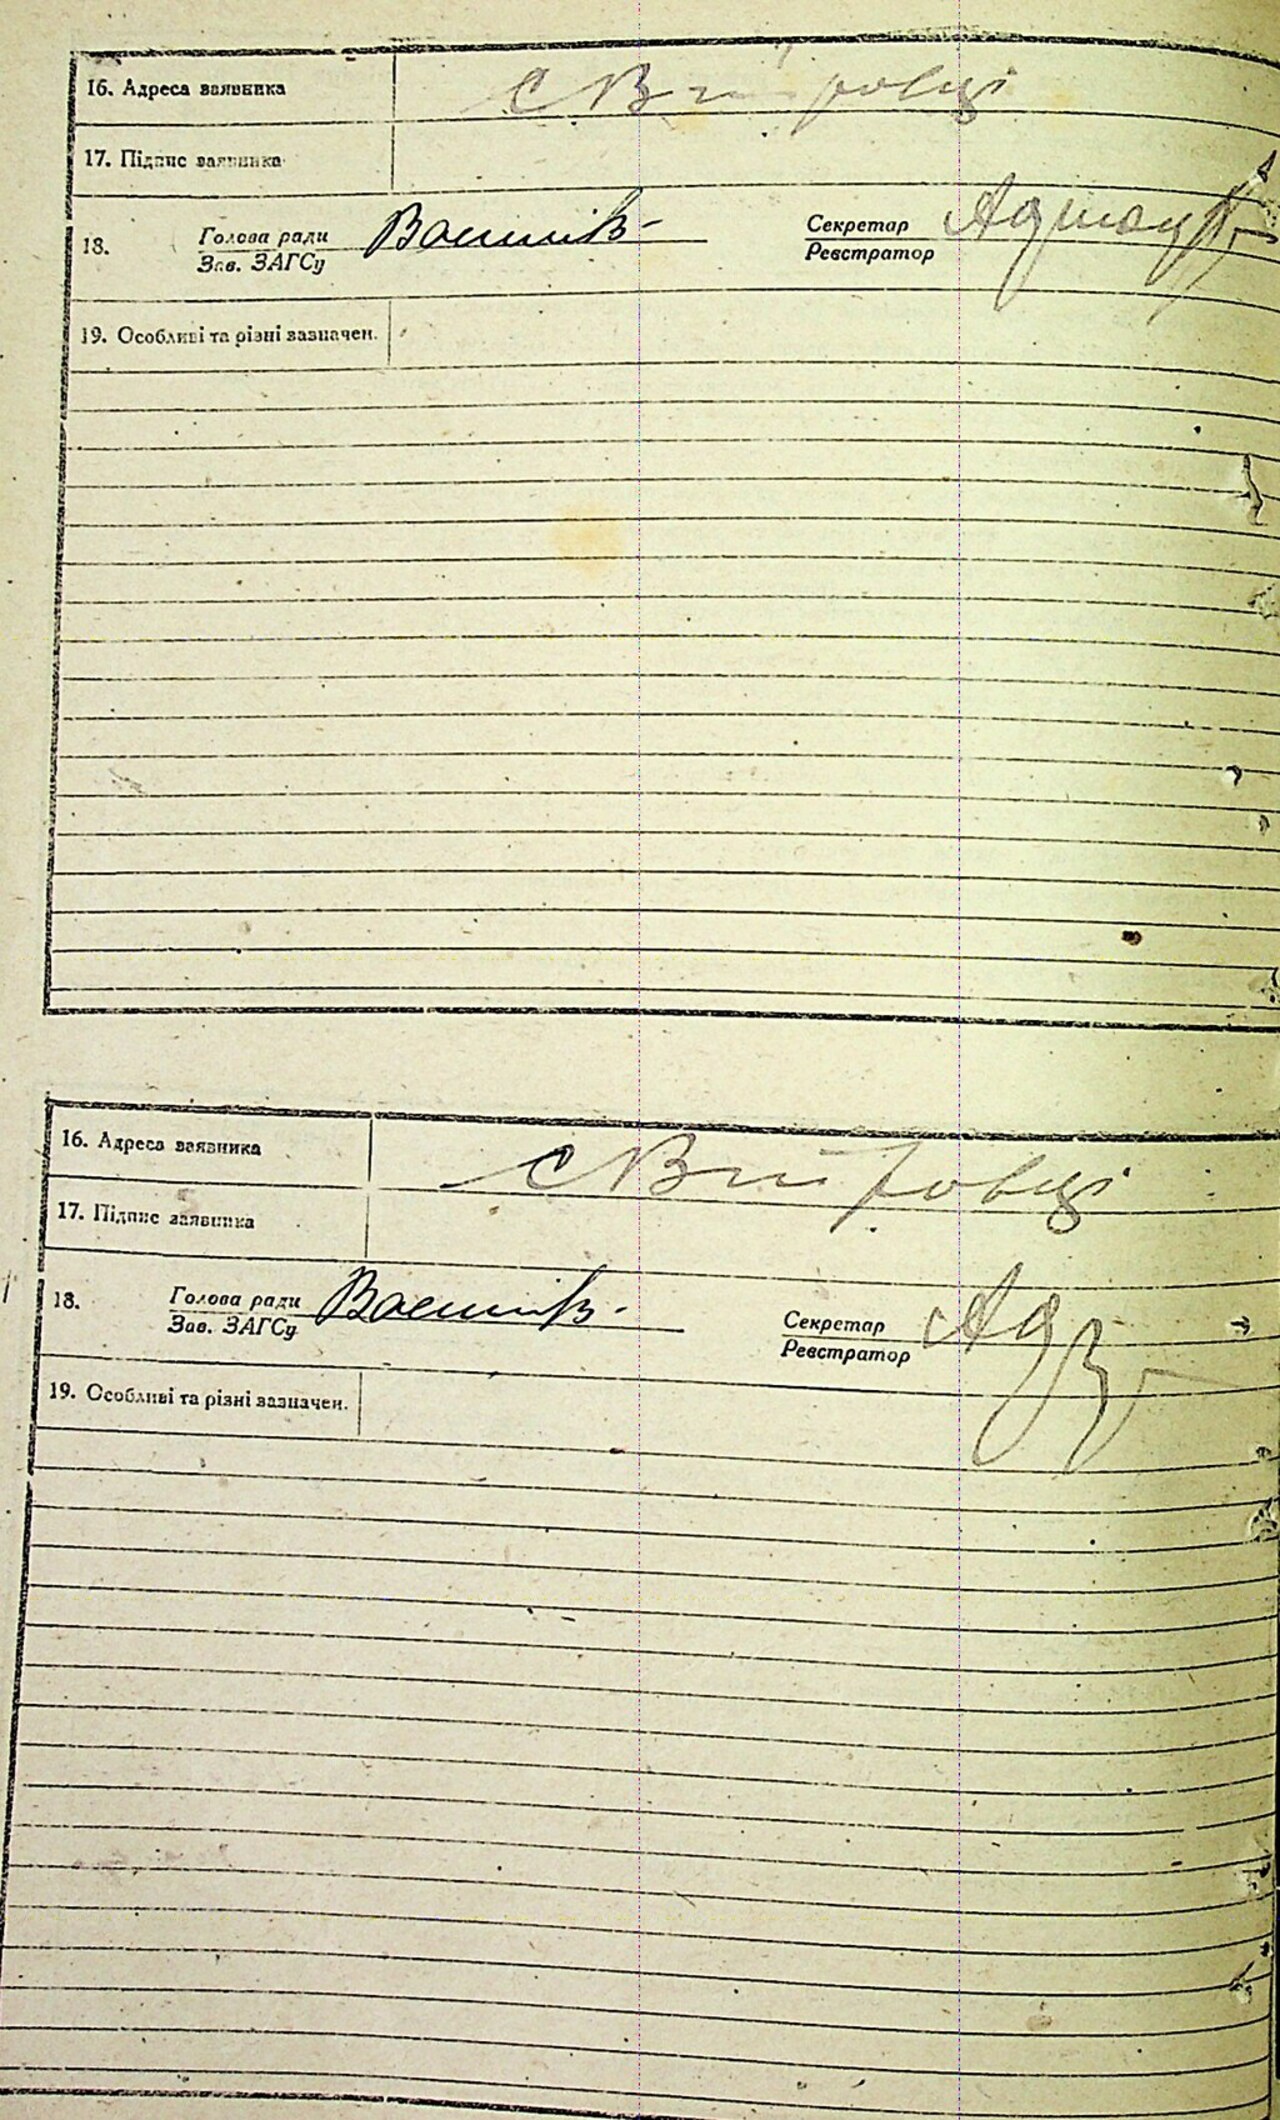 16. Адреса заявника с Вітровці
17. Підпис заявника
18. Голова ради
Зав. ЗАГСу
Секретар
Реєстратор
19. Особливі та різні зазначен.
16. Адреса заявника с Вітровці
17. Підпис заявника
18. Голова ради
Зав. ЗАГСу
Секретар
Реєстратор
19. Особливі та різні зазначен.